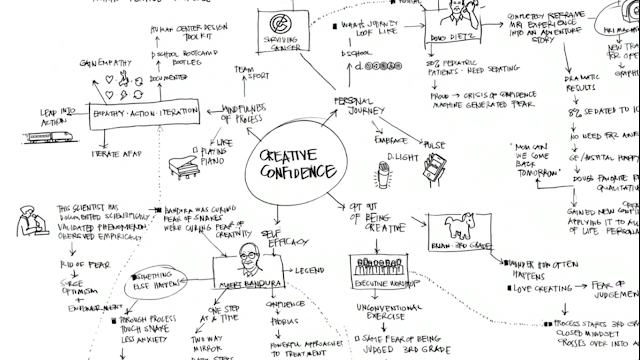 HUMAN CENTER DESIGN
TOOLKIT
D SCHOOL BOOTCAMP
BOOTLEG
GAIN EMPATHY
DOCUMENTED
LEAD INTO
ACTION
EMPATHY · ACTION · ITERATION
ITERATE ASAP
TEAM
SPORT
MINDFULNESS
OF PROCESS
LIKE
PLAYING
PIANO
SURVIVING
CANCER
WHAT'S JOURNEY
LOOK LIKE
D SCHOOL
PERSONAL
JOURNEY
EMBRACE
D.LIGHT
PULSE
CREATIVE
CONFIDENCE
DOUG DIETZ
COMPLETELY REFRAME
MRI EXPERIENCE
INTO AN ADVENTURE
STORY
80% PEDIATRIC
PATIENTS - NEED SEDATING
PROUD → CRISIS OF CONFIDENCE
MACHINE GENERATED FEAR
MRI MACHINE
NEW
FOR
GRAPHI
DRAMATIC
RESULTS
8% SEDATED TO
NO NEED FOR
GE/HOSPITAL HAPPY
DOUG'S FAVORITE
QUALITATI
"MOM CAN
WE COME
BACK
TOMORROW"
GAINED NEW
APPLYING IT TO ALL
OF LIFE PERSONAL
THIS SCIENTIST HAS
DOCUMENTED SCIENTIFICALLY
VALIDATED PHENOMENON
OBSERVED EMPIRICALLY
RID OF FEAR
SURGE
OPTIMISM
+
EMPOWERMENT
BANDURA WAS CURING
FEAR OF SNAKES
WE'RE CURING FEAR OF
CREATIVITY
SELF
EFFICACY
SOMETHING
ELSE HAPPENS
ALBERT BANDURA
LEGEND
THROUGH PROCESS
TOUCH SNAKE
LESS ANXIETY
ONE STEP
AT A TIME
TWO WAY
MIRROR
CONFIDENCE
PHOBIAS
POWERFUL APPROACHES
TO TREATMENT
OPT OUT
OF BEING
CREATIVE
BRIAN · 3RD GRADE
EXECUTIVE WORKSHOP
UNCONVENTIONAL
EXERCISE
SAME FEAR OF BEING
JUDGED 3RD GRADE
WONDER HOW OFTEN
HAPPENS
LOVE CREATING → FEAR OF
JUDGEMENT
PROCESS STARTS 3RD
CLOSED MINDSET
CROSSES OVER INTO